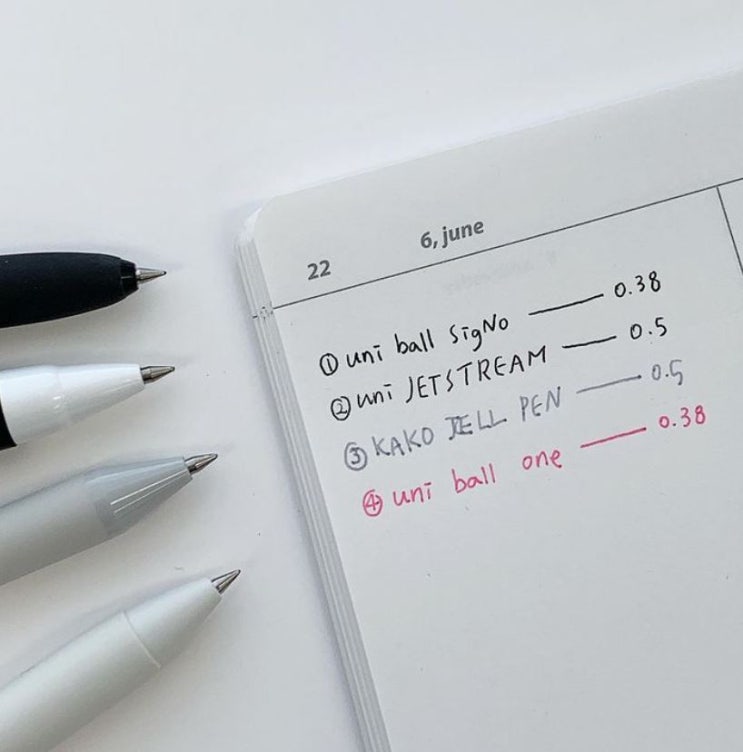 22 6, june
① uni ball SigNo —— 0.38
② uni JETSTREAM —— 0.5
③ KAKO JELL PEN —— 0.5
④ uni ball one —— 0.38